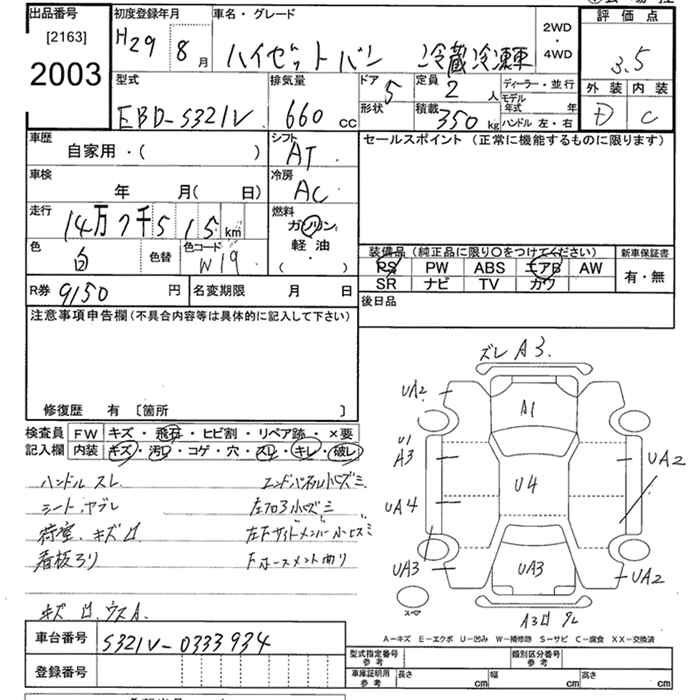 出品番号
[2163]
2003
初度登録年月
H29 8月
車名・グレード
ハイゼットバン 冷蔵冷凍車
2WD
・
4WD
評価点
3.5
外装 内装
D C
型式
EBD-S321V
排気量
660 cc
ドア
5
形状
定員
2 人
積載
350 kg
ディーラー・並行
モデル年式 年
ハンドル 左・右
車歴
自家用・( )
シフト
AT
セールスポイント (正常に機能するものに限ります)
車検
年 月( 日)
冷房
AC
走行
14万7千515 km
燃料
ガソリン
軽油
( ・ )
色
白
色替
色コード
W19
装備品 (純正品に限り○をつけてください)
PS PW ABS エアB AW
SR ナビ TV カワ
新車保証書
有・無
R券 9150 円
名変期限 月 日
後日品
注意事項申告欄 (不具合内容等は具体的に記入して下さい)
修復歴 有 〔箇所 〕
検査員記入欄
FW キズ・飛石・ヒビ割・リペア跡・×要
内装 キズ・汚レ・コゲ・穴・スレ・キレ・破レ
ハンドル スレ
シート ヤブレ
荷室 キズ
看板
キズ ウス A
ズレ A3
UA2
A1
U1
A3
UA4
U4
UA2
UA3
UA3
UA2
スペア
A3
A－キズ E－エクボ U－凹み W－補修跡 S－サビ C－腐食 XX－交換済
車台番号 S321V-0333934
登録番号
型式指定番号 参考
類別区分番号 参考
車庫証明用 参考
長さ cm 幅 cm 高さ cm